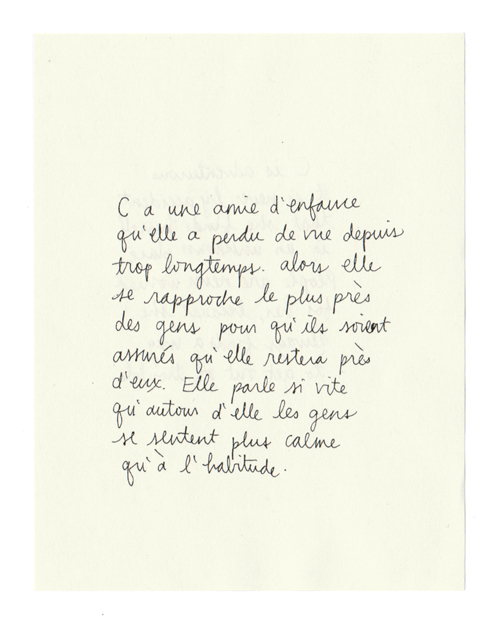 C a une amie d'enfance
qu'elle a perdu de vue depuis
trop longtemps. alors elle
se rapproche le plus près
des gens pour qu'ils soient
assurés qu'elle restera près
d'eux. Elle parle si vite
qu'autour d'elle les gens
se sentent plus calme
qu'à l'habitude.